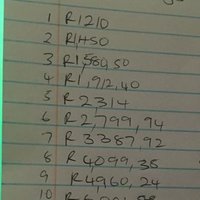 1 R1210
2 R1450
3 R1,580,50
4 R1,912,40
5 R2314
6 R2,799,94
7 R3387,92
8 R4099,38
9 R4960,24
10